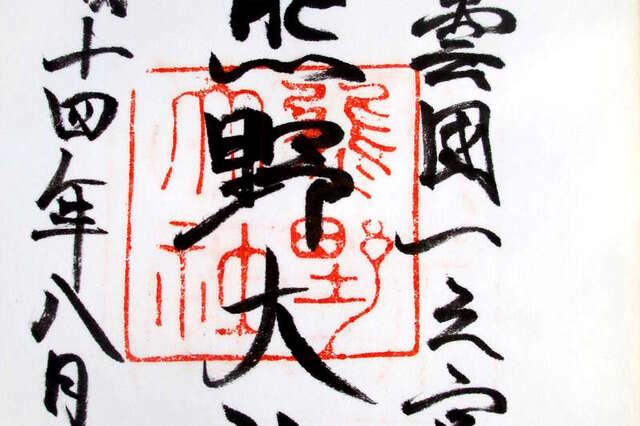 雲國一之宮
熊野大
十四年八月
熊野
大社